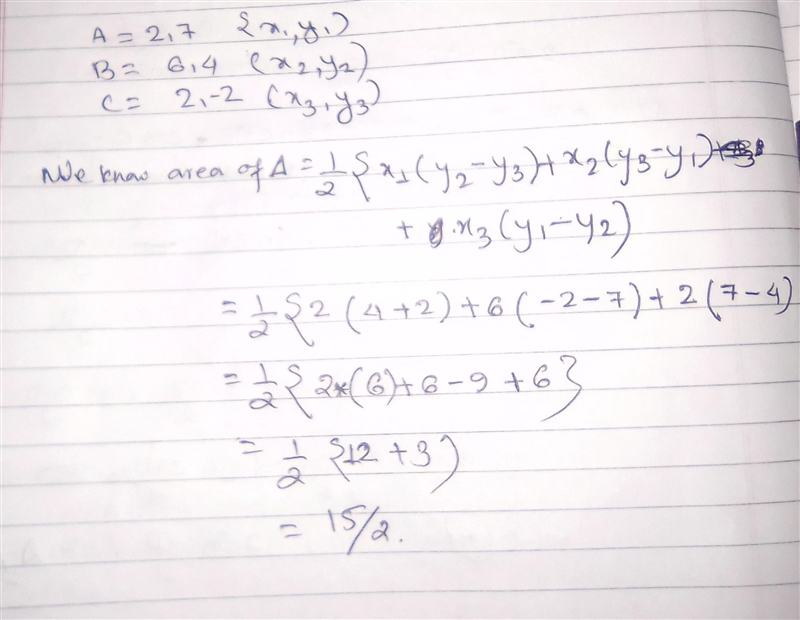 A = 2,7 {x₁,y₁)
B = 6,4 (x₂,y₂)
C = 2,-2 (x₃,y₃)
We know area of Δ = 1/2 { x₁(y₂-y₃)+x₂(y₃-y₁)
+ x₃(y₁-y₂)
= 1/2 { 2 (4+2) + 6 (-2-7) + 2 (7-4)
= 1/2 { 2×(6)+6-9+6}
= 1/2 {12+3)
= 15/2.